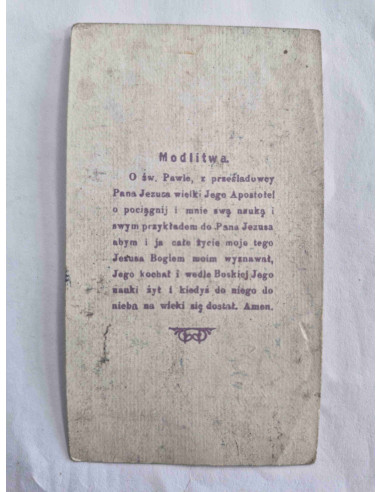 Modlitwa.
O św. Pawle, z prześladowcy
Pana Jezusa wielki Jego Apostole!
o pociągnij i mnie swą nauką i
swym przykładem do Pana Jezusa
abym i ja całe życie moje tego
Jezusa Bogiem moim wyznawał,
Jego kochał i wedle Boskiej Jego
nauki żył i kiedyś do niego do
nieba na wieki się dostał. Amen.